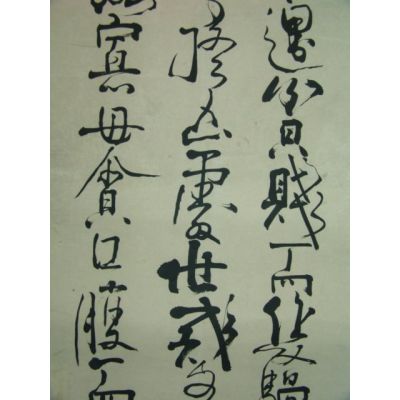 遇貧賤而作驕
終凶處世戒多
孤寡毋貪口腹而